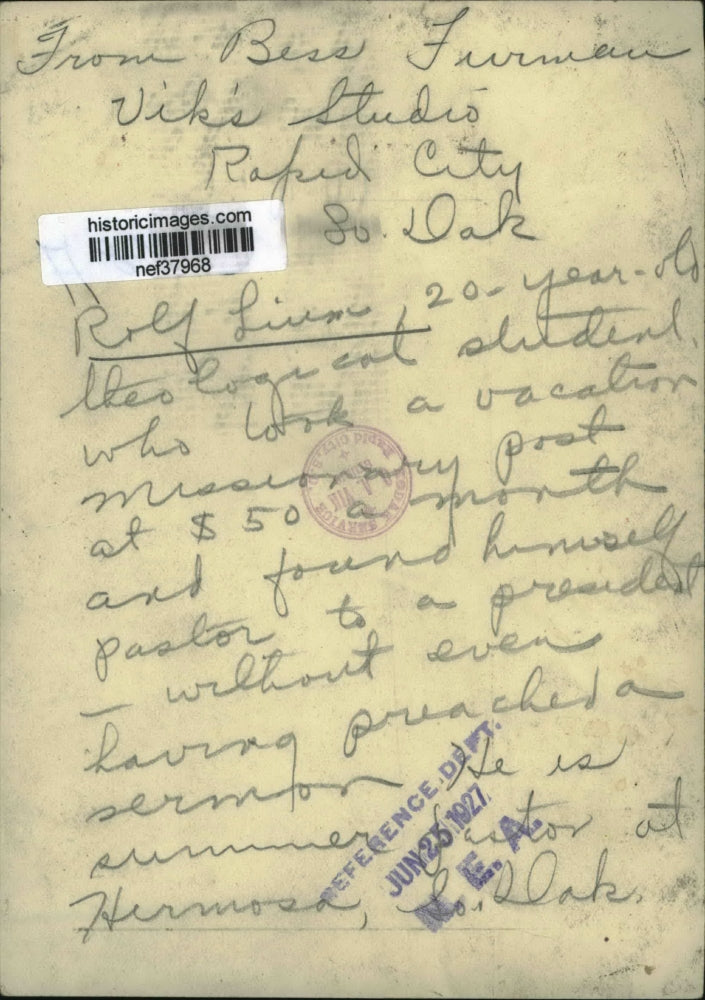 From Bess Furman
Vik's Studio
Rapid City
So. Dak
historicimages.com
nef37968
Rolf Lium, 20-year-old
theological student,
who took a vacation
missionary post
at $50 a month
and found himself
pastor to a president
– without even
having preached a
sermon He is
summer pastor at
Hermosa, So. Dak.
REFERENCE DEPT.
JUN 25 1927
N. E. A.